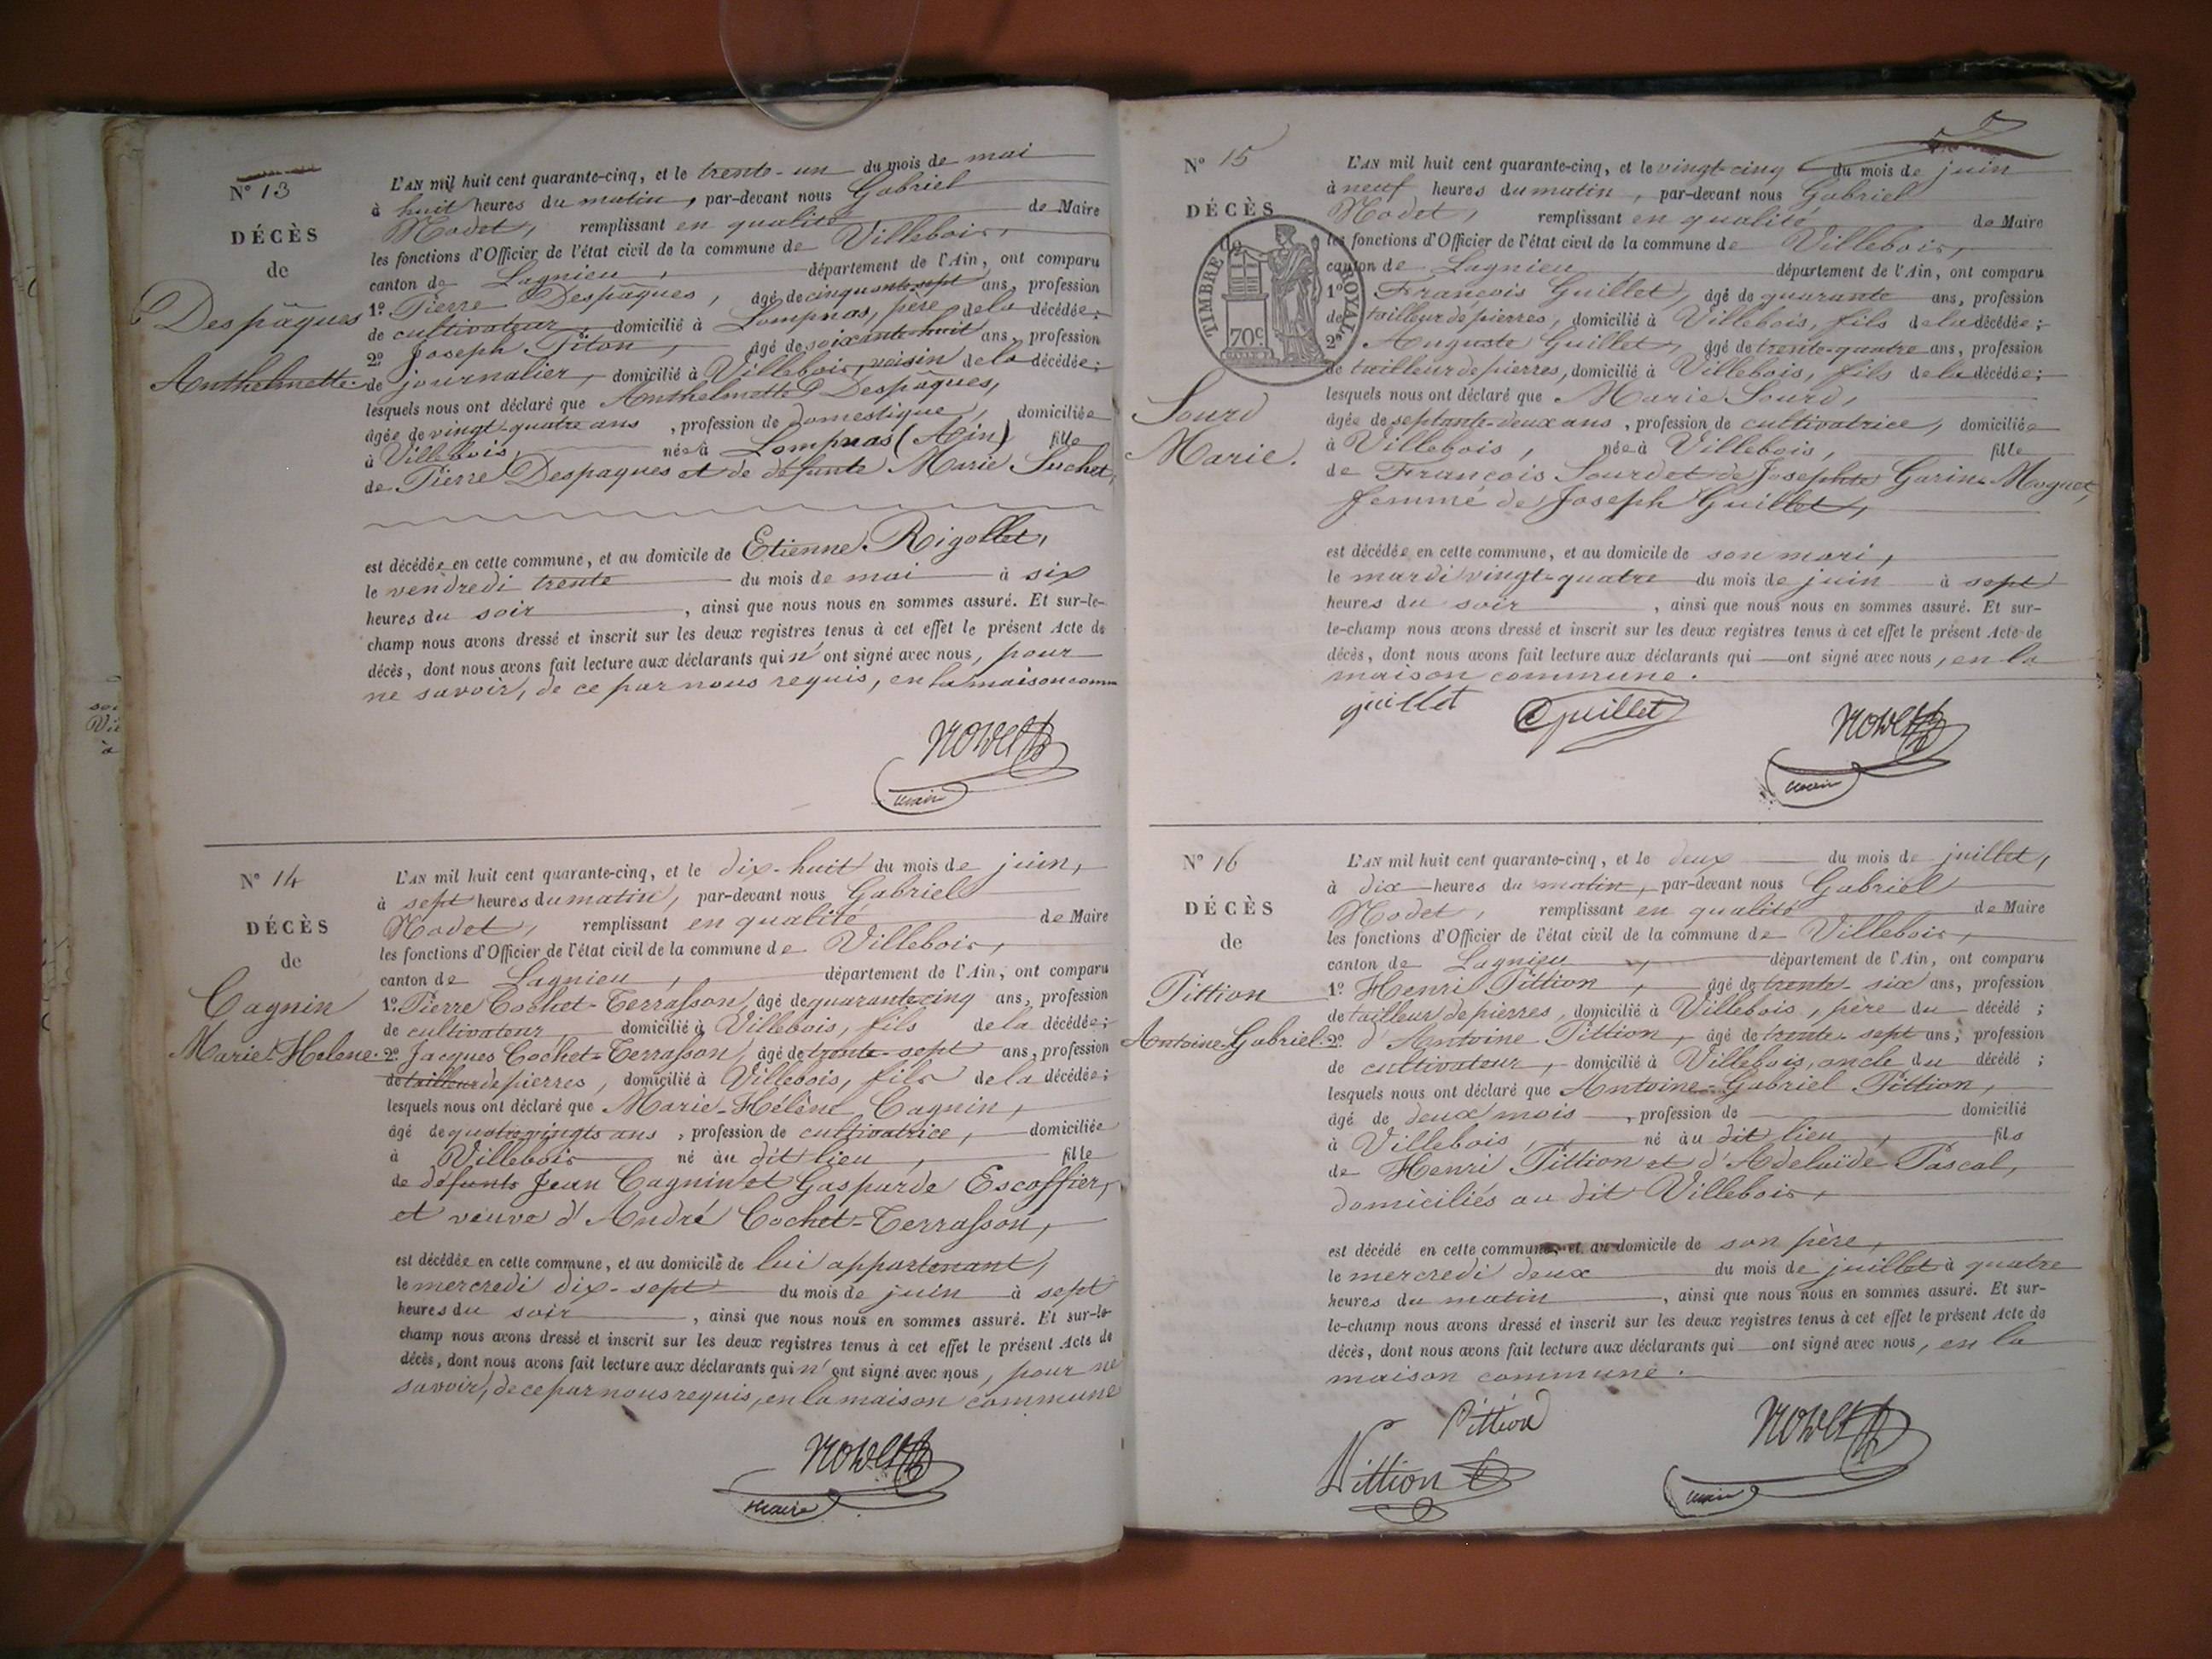 N° 13
DÉCÈS
de
Despâques
Anthelmette.
L'AN mil huit cent quarante-cinq, et le trente-un du mois de mai
à huit heures du matin, par-devant nous Gabriel
Nodet, remplissant en qualité de Maire
les fonctions d'Officier de l'état civil de la commune de Villebois,
canton de Lagnieu, département de l'Ain, ont comparu
1° Pierre Despâques, âgé de cinquante-sept ans, profession
de cultivateur, domicilié à Lompnas, père de la décédée;
2° Joseph Piton, âgé de soixante-huit ans, profession
de journalier, domicilié à Villebois, voisin de la décédée;
lesquels nous ont déclaré que Anthelmette Despâques,
âgée de vingt-quatre ans, profession de domestique, domiciliée
à Villebois, née à Lompnas (Ain) fille
de Pierre Despaques et de défunte Marie Suchet,
est décédée en cette commune, et au domicile de Etienne Rigollet,
le vendredi trente du mois de mai à six
heures du soir, ainsi que nous nous en sommes assuré. Et sur-le-
champ nous avons dressé et inscrit sur les deux registres tenus à cet effet le présent Acte de
décès, dont nous avons fait lecture aux déclarants qui n'ont signé avec nous, pour
ne savoir, de ce par nous requis, en la maison comm
NODET
maire
N° 14
DÉCÈS
de
Cagnin
Marie-Helene.
L'AN mil huit cent quarante-cinq, et le dix-huit du mois de juin,
à sept heures du matin, par-devant nous Gabriel
Nodet, remplissant en qualité de Maire
les fonctions d'Officier de l'état civil de la commune de Villebois,
canton de Lagnieu, département de l'Ain, ont comparu
1° Pierre Cochet-Terrasson, âgé de quarante-cinq ans, profession
de cultivateur, domicilié à Villebois, fils de la décédée;
2° Jacques Cochet-Terrasson, âgé de trente-sept ans, profession
de tailleur de pierres, domicilié à Villebois, fils de la décédée;
lesquels nous ont déclaré que Marie-Hélène Cagnin,
âgé de quatre vingts ans, profession de cultivatrice, domiciliée
à Villebois né au dit lieu, fille
de défunts Jean Cagnin et Gasparde Escoffier,
et veuve d'André Cochet-Terrasson,
est décédée en cette commune, et au domicile de lui appartenant,
le mercredi dix-sept du mois de juin à sept
heures du soir, ainsi que nous nous en sommes assuré. Et sur-le-
champ nous avons dressé et inscrit sur les deux registres tenus à cet effet le présent Acte de
décès, dont nous avons fait lecture aux déclarants qui n'ont signé avec nous, pour ne
savoir, de ce par nous requis, en la maison commune
NODET
maire
N° 15
DÉCÈS
de
TIMBRE ROYAL
70 c.
Sourd
Marie.
L'AN mil huit cent quarante-cinq, et le vingt-cinq du mois de juin
à neuf heures du matin, par-devant nous Gabriel
Nodet, remplissant en qualité de Maire
les fonctions d'Officier de l'état civil de la commune de Villebois,
canton de Lagnieu département de l'Ain, ont comparu
1° François Guillet, âgé de quarante ans, profession
de tailleur de pierres, domicilié à Villebois, fils de la décédée;
2° Auguste Guillet, âgé de trente-quatre ans, profession
de tailleur de pierres, domicilié à Villebois, fils de la décédée;
lesquels nous ont déclaré que Marie Sourd,
âgée de septante-deux ans, profession de cultivatrice, domiciliée
à Villebois, née à Villebois, fille
de François Sourd et de Josephte Garin-Moguet,
femme de Joseph Guillet,
est décédée en cette commune, et au domicile de son mari,
le mardi vingt-quatre du mois de juin à sept
heures du soir, ainsi que nous nous en sommes assuré. Et sur-
le-champ nous avons dressé et inscrit sur les deux registres tenus à cet effet le présent Acte de
décès, dont nous avons fait lecture aux déclarants qui ont signé avec nous, en la
maison commune.
guillet guillet NODET
maire
N° 16
DÉCÈS
de
Pittion
Antoine-Gabriel.
L'AN mil huit cent quarante-cinq, et le deux du mois de juillet,
à dix heures du matin, par-devant nous Gabriel
Nodet, remplissant en qualité de Maire
les fonctions d'Officier de l'état civil de la commune de Villebois,
canton de Lagnieu, département de l'Ain, ont comparu
1° Henri Pittion, âgé de trente-six ans, profession
de tailleur de pierres, domicilié à Villebois, père du décédé;
2° d'Antoine Pittion, âgé de trente-sept ans, profession
de cultivateur, domicilié à Villebois, oncle du décédé;
lesquels nous ont déclaré que Antoine-Gabriel Pittion,
âgé de deux mois, profession de domicilié
à Villebois, né au dit lieu, fils
de Henri Pittion et d'Adelaïde Pascal,
domiciliés au dit Villebois,
est décédé en cette commune, et au domicile de son père,
le mercredi deux du mois de juillet à quatre
heures du matin, ainsi que nous nous en sommes assuré. Et sur-
le-champ nous avons dressé et inscrit sur les deux registres tenus à cet effet le présent Acte de
décès, dont nous avons fait lecture aux déclarants qui ont signé avec nous, en la
maison commune.
Pittion
Pittion NODET
maire